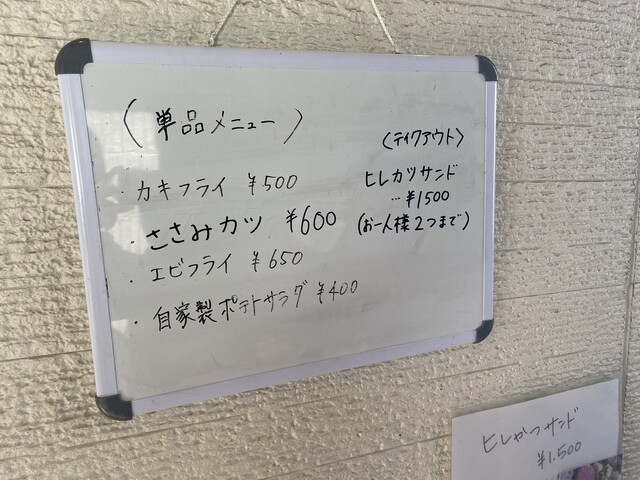 (単品メニュー)
・カキフライ ¥500
・ささみカツ ¥600
・エビフライ ¥650
・自家製ポテトサラダ ¥400
〈テイクアウト〉
ヒレカツサンド
…¥1500
(お一人様2つまで)
ヒレかつサンド
¥1.500